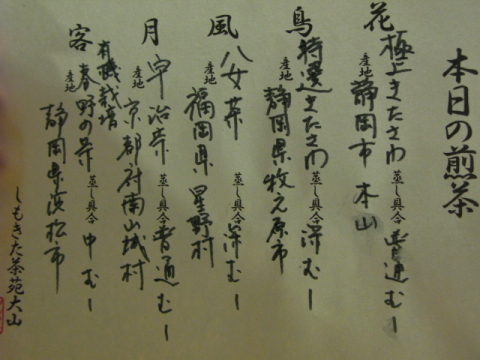 本日の煎茶
花 極上きたさわ 蒸し具合 普通むし
産地 静岡市 本山
鳥 特選きたさわ 蒸し具合 深むし
産地 静岡県牧之原市
風 八女茶 蒸し具合 深むし
産地 福岡県 星野村
月 宇治茶 蒸し具合 普通むし
産地 京都府南山城村
客 有機栽培 春野の茶 蒸し具合 中むし
産地 静岡県浜松市
しもきた茶苑大山